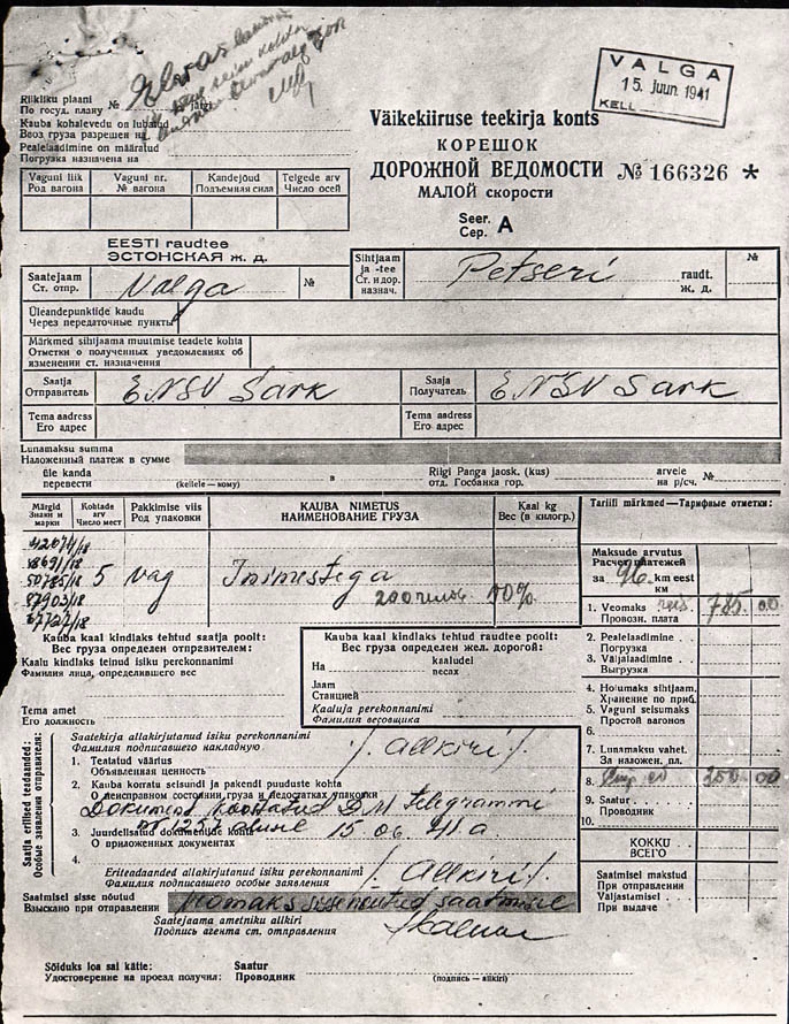 VALGA
15. Juun. 1941
KELL
Riikliku plaani
По госуд. плану №
Kauba kohalevedu on lubatud
Ввоз груза разрешен на
Pealelaadimine on määratud
Погрузка назначена на
Väikekiiruse teekirja konts
КОРЕШОК
ДОРОЖНОЙ ВЕДОМОСТИ № 166326 *
МАЛОЙ скорости
Seer. A
Сер.
Vaguni liik Vaguni nr. Kandejõud Telgede arv
Род вагона № вагона Подъемная сила Число осей
EESTI raudtee
ЭСТОНСКАЯ ж. д.
Saatejaam
Ст. отпр. Valga №
Sihtjaam ja -tee
Ст. и дор. назнач. Petseri raudt. ж. д. №
Üleandepunktide kaudu
Через передаточные пункты
Märkmed sihtjaama muutmise teadete kohta
Отметки о полученных уведомлениях об
изменении ст. назначения
Saatja
Отправитель ENSV Sark
Saaja
Получатель ENSV Sark
Tema aadress
Его адрес
Tema aadress
Его адрес
Lunamaksu summa
Наложенный платеж в сумме
üle kanda
перевести (kellele — кому) в
Riigi Panga jaosk. (kus)
отд. Госбанка гор.
arvele
на р/сч. №
Märgid Kohtade arv Pakkimise viis KAUBA NIMETUS Kaal kg
Знаки и марки Число мест Род упаковки НАИМЕНОВАНИЕ ГРУЗА Вес (в килогр.)
Tariifi märkmed — Тарифные отметки:
42074/18
50785/18 5 vag Inimestega
87903/18
Maksude arvutus
Расчет платежей
за 96 km eest
км
1. Veomaks 785.00
Провозн. плата
2. Pealelaadimine
Погрузка
3. Väljalaadimine
Выгрузка
4. Hoiumaks sihtjaam.
Хранение по приб.
5. Vaguni seisumaks
Простой вагонов
6.
7. Lunamaksu vahet.
За наложен. пл.
8. 250 00
9. Saatur
Проводник
10.
KOKKU
ВСЕГО
Saatmisel makstud
При отправлении
Väljastamisel
При выдаче
Kauba kaal kindlaks tehtud saatja poolt:
Вес груза определен отправителем:
Kaalu kindlaks teinud isiku perekonnanimi
Фамилия лица, определившего вес
Tema amet
Его должность
Kauba kaal kindlaks tehtud raudtee poolt:
Вес груза определен жел. дорогой:
На kaaludel
весах
Jaam
Станцией
Kaaluja perekonnanimi
Фамилия весовщика
Saatja erilised teadaanded:
Особые заявления отправителя:
Saatekirja allakirjutanud isiku perekonnanimi
Фамилия подписавшего накладную /. Allkiri /.
1. Teatatud väärtus
Объявленная ценность
2. Kauba korratu seisundi ja pakendi puuduste kohta
О неисправном состоянии груза и недостатках упаковки
Dokument koostatud DM telegrammi
15.06.41.a.
3. Juurdelisatud dokumentide kohta
О приложенных документах
4.
Eriteadaanded allakirjutanud isiku perekonnanimi
Фамилия подписавшего особые заявления /. Allkiri /.
Saatmisel sisse nõutud
Взыскано при отправлении Veomaks sissenõutud saatmisel
Saatejaama ametniku allkiri
Подпись агента ст. отправления
Sõiduks loa sai kätte: Saatur
Удостоверение на проезд получил: Проводник (подпись — allkiri)